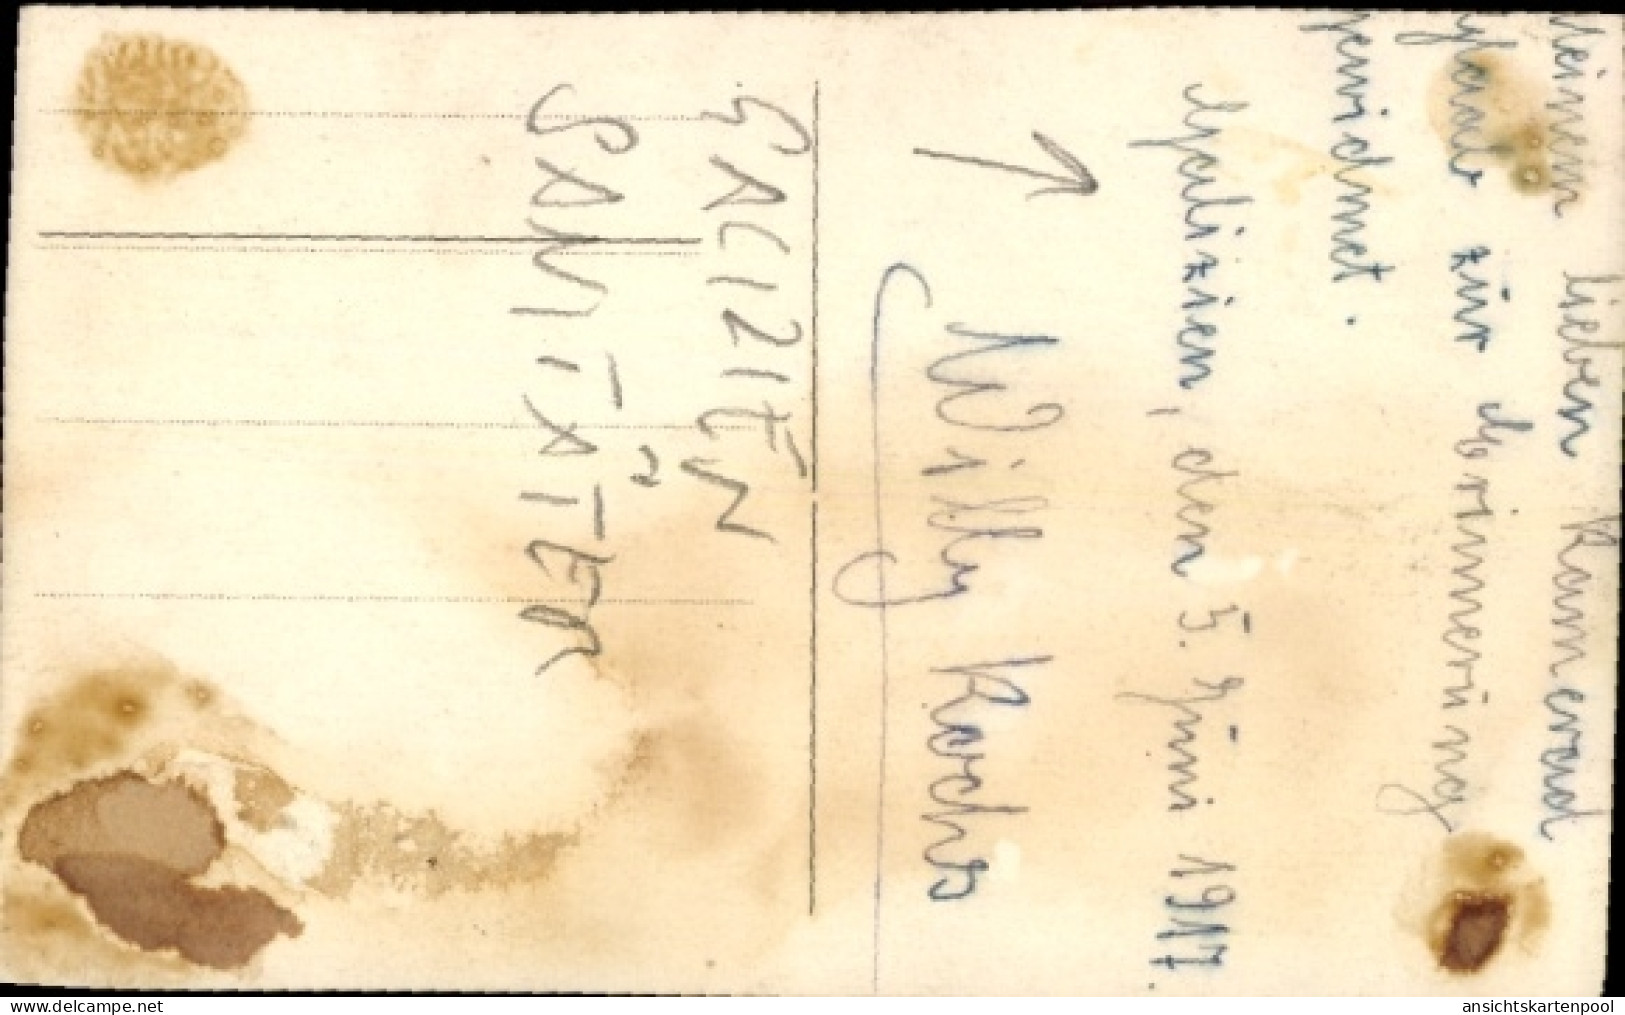 Meinem lieben Kamerad
zur Erinnerung
gewidmet.
Galizien, den 5. Juni 1917
Willy Kochs
GALIZIEN
SANITÄTER
www.delcampe.net
ansichtskartenpool